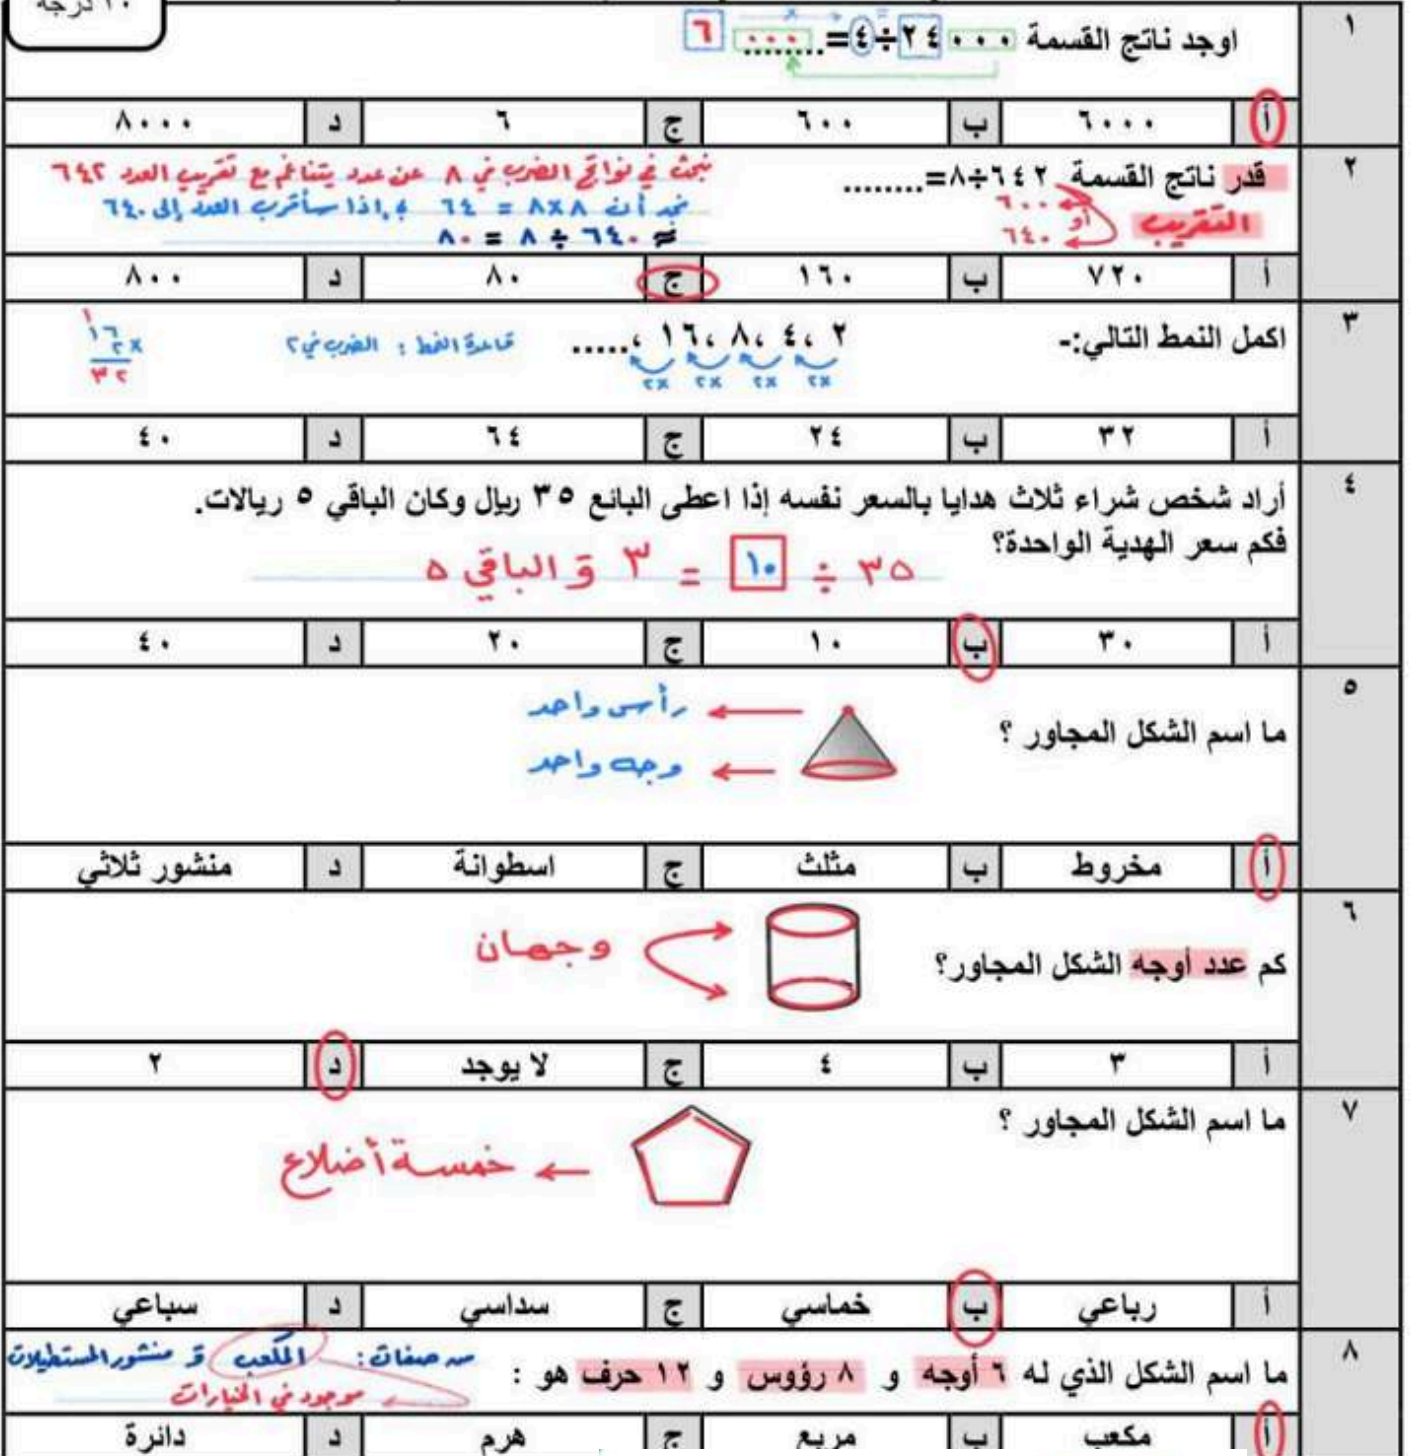 ١٠ درجة
١
اوجد ناتج القسمة ٢٤٠٠٠÷٤=........ ٦ ٠٠٠
أ ٦٠٠٠ ب ٦٠٠ ج ٦ د ٨٠٠٠
٢
قدر ناتج القسمة ٦٤٢÷٨=........
التقريب
٦٠٠
أو
٦٤٠
نبحث في نواتج الضرب في ٨ عن عدد يتناغم مع تقريب العدد ٦٤٢
نجد أن ٨×٨ = ٦٤ ، إذا سأقرب العدد إلى ٦٤٠
≈ ٦٤٠ ÷ ٨ = ٨٠
أ ٧٢٠ ب ١٦٠ ج ٨٠ د ٨٠٠
٣
اكمل النمط التالي:-
٢ ،٤ ،٨ ،١٦ ،.....
×٢ ×٢ ×٢ ×٢
قاعدة النمط : الضرب في ٢
١
١٦
×٢
٣٢
أ ٣٢ ب ٢٤ ج ٦٤ د ٤٠
٤
أراد شخص شراء ثلاث هدايا بالسعر نفسه إذا اعطى البائع ٣٥ ريال وكان الباقي ٥ ريالات.
فكم سعر الهدية الواحدة؟
٣٥ ÷ ١٠ = ٣ و الباقي ٥
أ ٣٠ ب ١٠ ج ٢٠ د ٤٠
٥
ما اسم الشكل المجاور ؟
رأس واحد
وجه واحد
أ مخروط ب مثلث ج اسطوانة د منشور ثلاثي
٦
كم عدد أوجه الشكل المجاور؟
وجهان
أ ٣ ب ٤ ج لا يوجد د ٢
٧
ما اسم الشكل المجاور ؟
خمسة أضلاع
أ رباعي ب خماسي ج سداسي د سباعي
٨
ما اسم الشكل الذي له ٦ أوجه و ٨ رؤوس و ١٢ حرف هو :
من صفات: المكعب و منشور المستطيلات
موجود في الخيارات
أ مكعب ب مربع ج هرم د دائرة